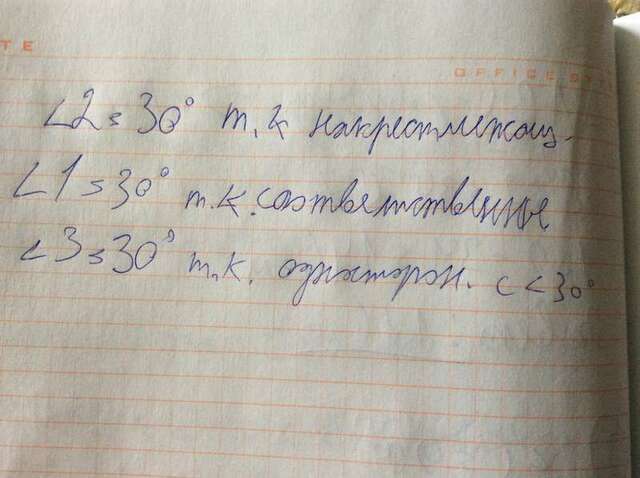 TE
OFFICE S
<2 = 30° т.к накрестлежащ.
<1 = 30° т.к. соответственные
<3 = 30° т.к. односторон. с <30°